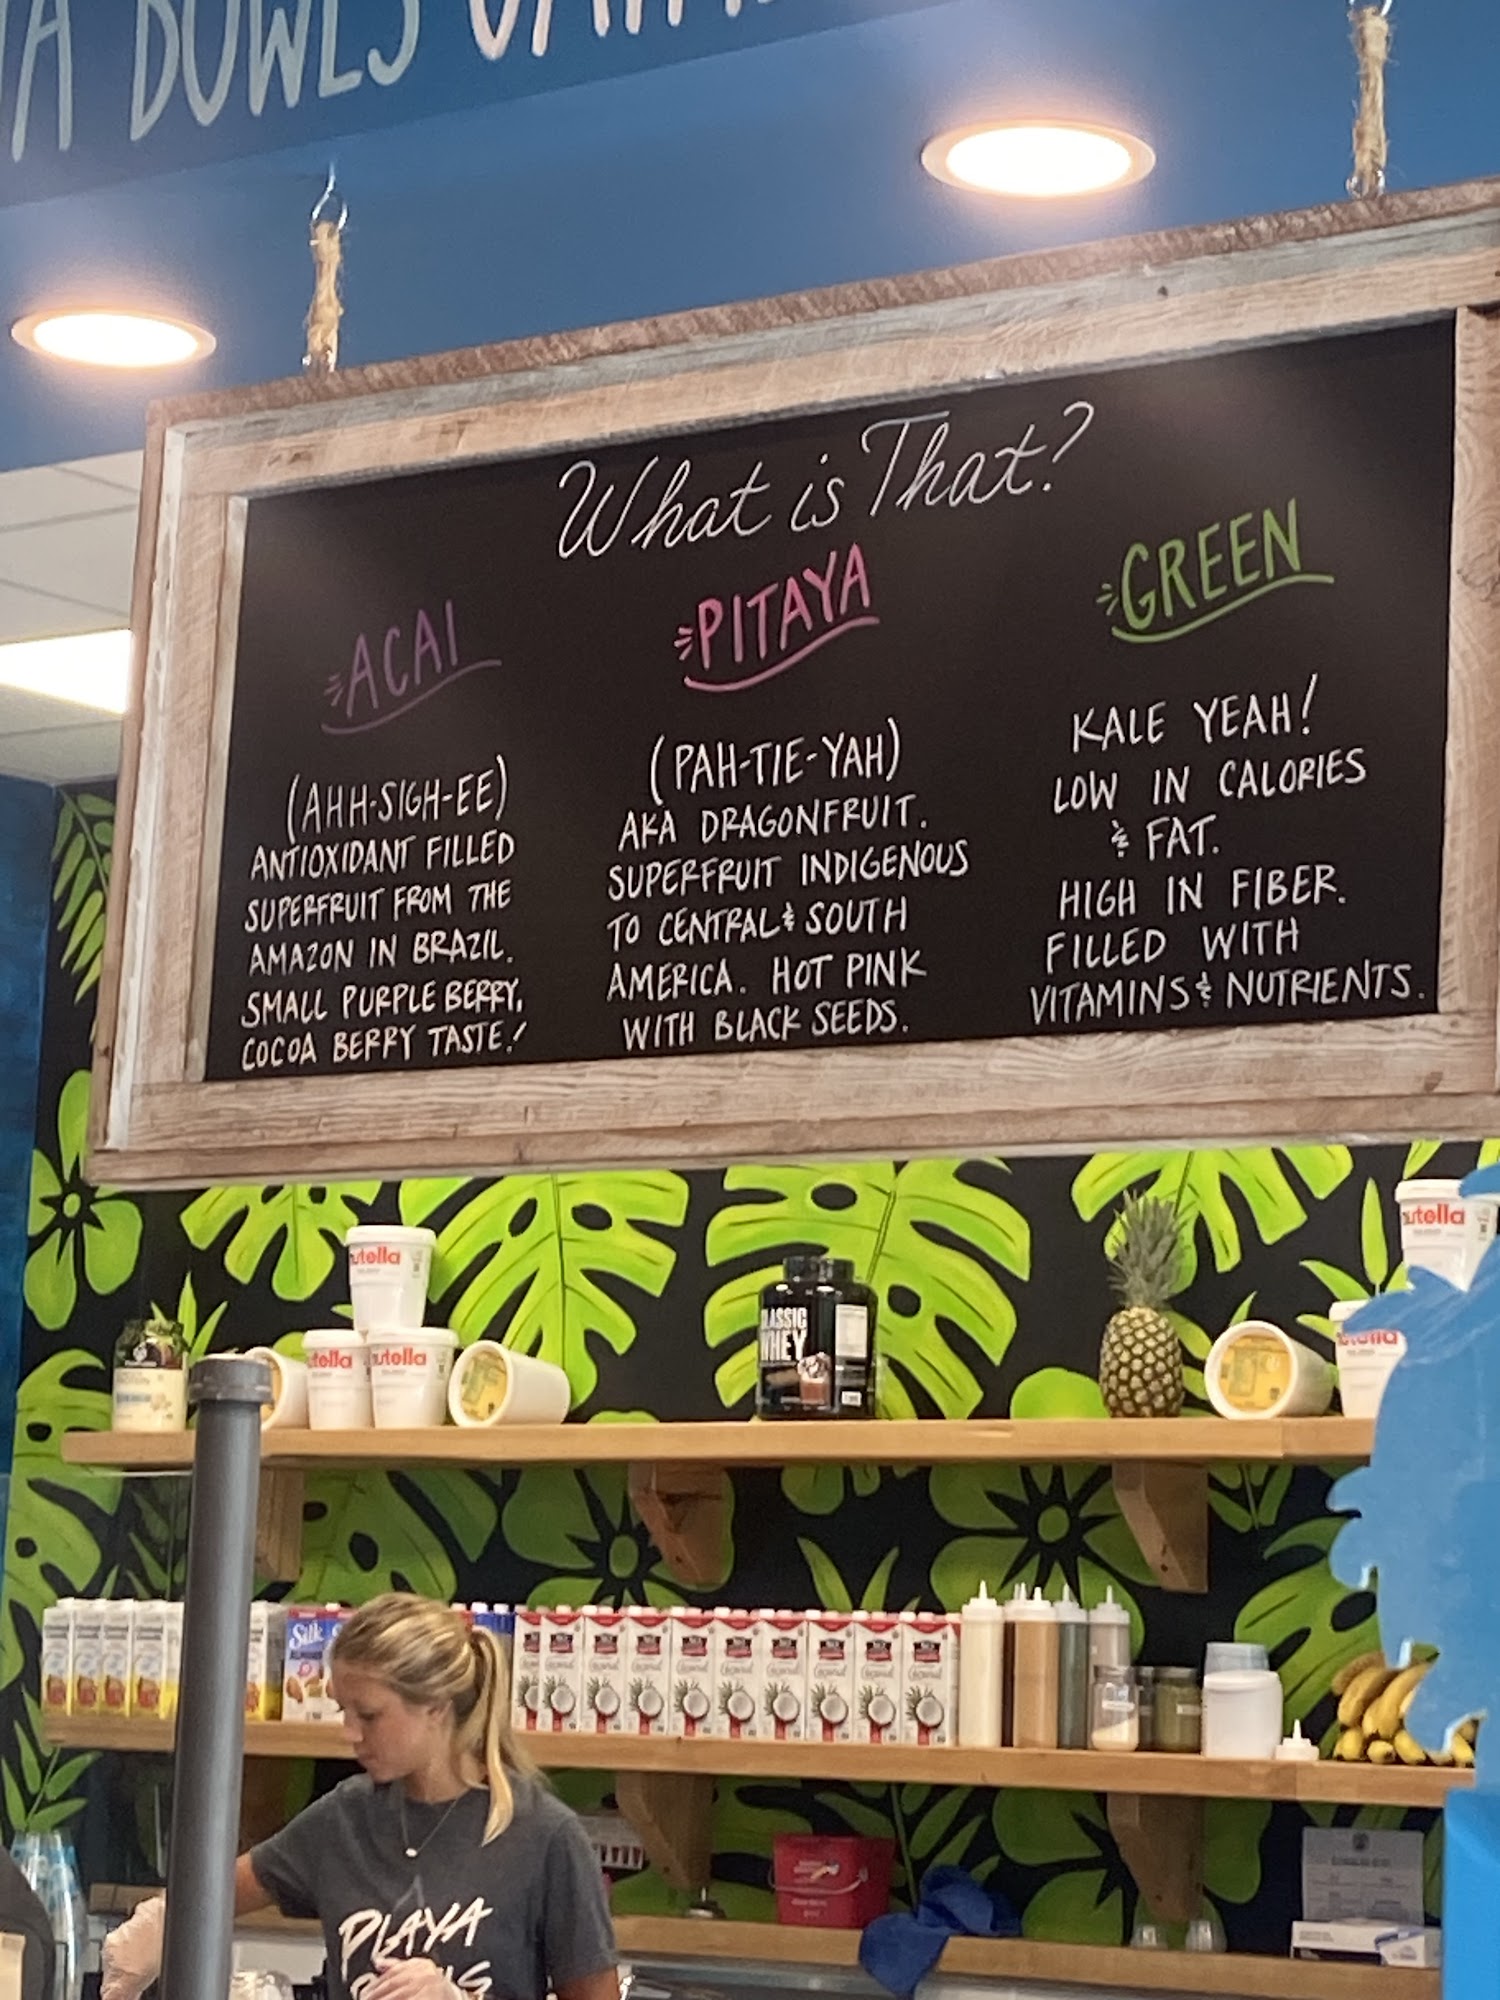 BOWLS
What is That?
ACAI
(AHH-SIGH-EE)
ANTIOXIDANT FILLED
SUPERFRUIT FROM THE
AMAZON IN BRAZIL.
SMALL PURPLE BERRY,
COCOA BERRY TASTE!
PITAYA
(PAH-TIE-YAH)
AKA DRAGONFRUIT.
SUPERFRUIT INDIGENOUS
TO CENTRAL & SOUTH
AMERICA. HOT PINK
WITH BLACK SEEDS.
GREEN
KALE YEAH!
LOW IN CALORIES
& FAT.
HIGH IN FIBER.
FILLED WITH
VITAMINS & NUTRIENTS.
nutella
nutella
nutella
nutella
nutella
CLASSIC
WHEY
Silk
PLAYA